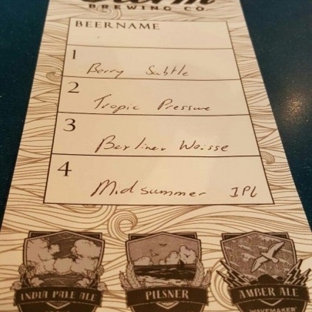 BREWING CO.
BEERNAME
1
Berry Subtle
2
Tropic Pressure
3
Berliner Weisse
4
Midsummer IPL
INDIA PALE ALE
PILSNER
AMBER ALE